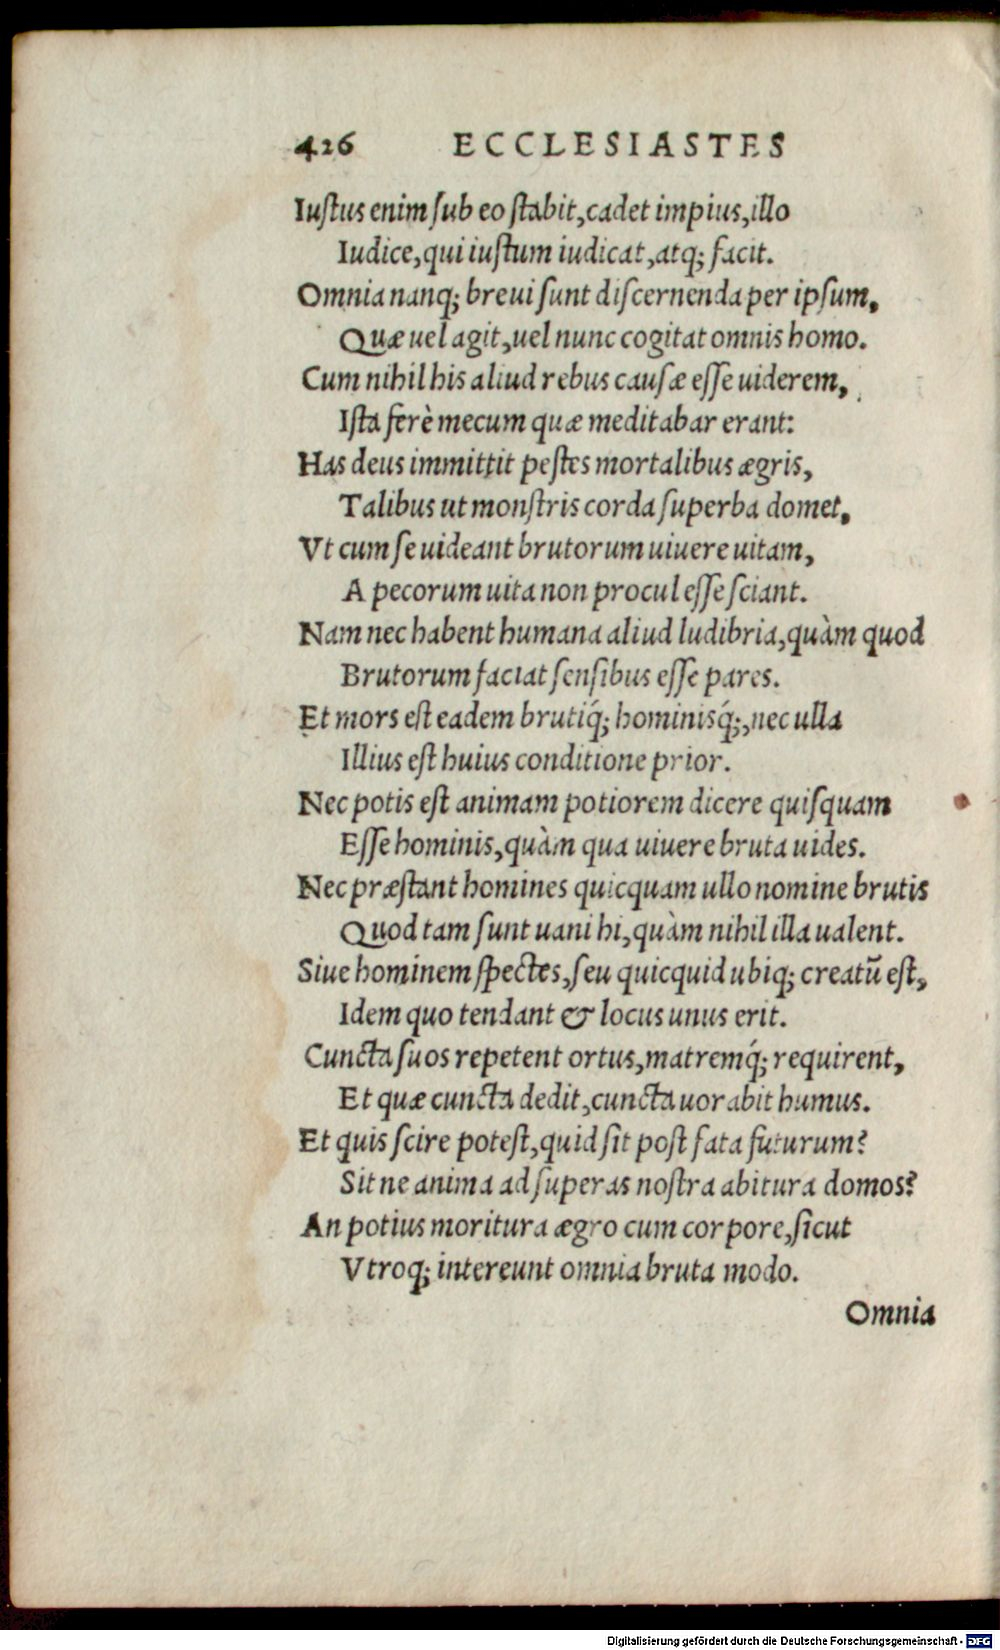 426 ECCLESIASTES
Iuſtus enim ſub eo ſtabit, cadet impius, illo
Iudice, qui iuſtum iudicat, atq; facit.
Omnia nanq; breui ſunt diſcernenda per ipſum,
Quæ uel agit, uel nunc cogitat omnis homo.
Cum nihil his aliud rebus cauſæ eſſe uiderem,
Iſta ferè mecum quæ meditabar erant:
Has deus immittit peſtes mortalibus ægris,
Talibus ut monſtris corda ſuperba domet,
Vt cum ſe uideant brutorum uiuere uitam,
A pecorum uita non procul eſſe ſciant.
Nam nec habent humana aliud ludibria, quàm quod
Brutorum faciat ſenſibus eſſe pares.
Et mors eſt eadem brutiq́; hominisq́;, nec ulla
Illius eſt huius conditione prior.
Nec potis eſt animam potiorem dicere quiſquam
Eſſe hominis, quàm qua uiuere bruta uides.
Nec præſtant homines quicquam ullo nomine brutis
Quod tam ſunt uani hi, quàm nihil illa ualent.
Siue hominem ſpectes, ſeu quicquid ubiq; creatū eſt,
Idem quo tendant & locus unus erit.
Cuncta ſuos repetent ortus, matremq́; requirent,
Et quæ cuncta dedit, cuncta uorabit humus.
Et quis ſcire poteſt, quid ſit poſt fata futurum?
Sit ne anima ad ſuperas noſtra abitura domos?
An potius moritura ægro cum corpore, ſicut
Vtroq; intereunt omnia bruta modo.
Omnia
Digitalisierung gefördert durch die Deutsche Forschungsgemeinschaft - DFG